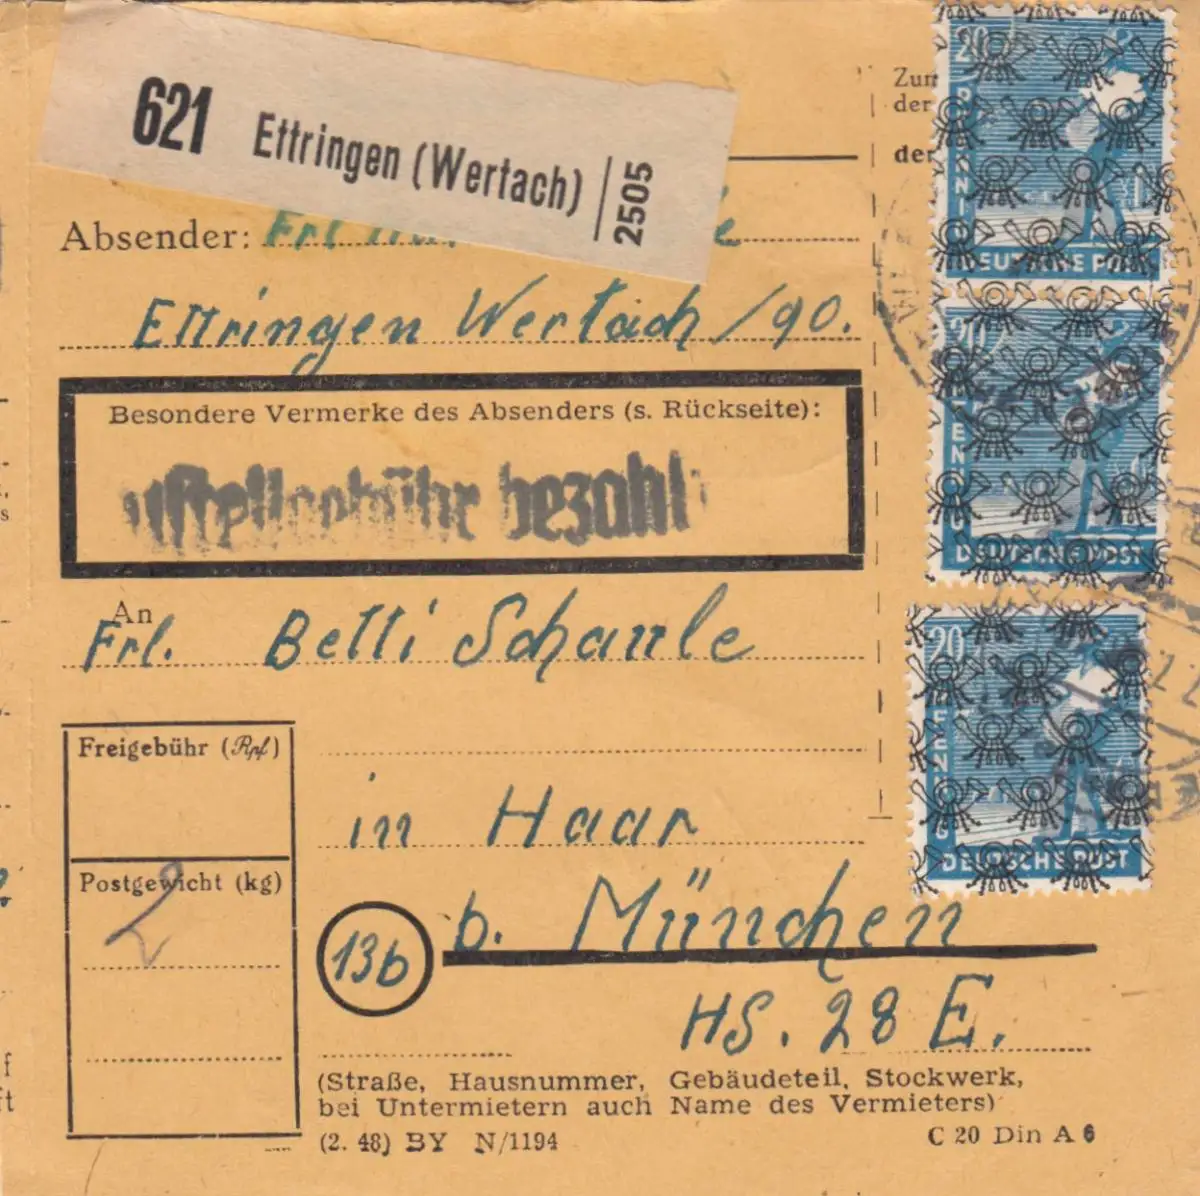 621 Ettringen (Wertach) 2505
Zum
der
der
Absender: Frl
Ettringen Wertach/90.
Besondere Vermerke des Absenders (s. Rückseite):
bezahlt
An
Frl. Betti Schaule
Freigebühr (Rpf)
in Haar
Postgewicht (kg)
2
13b
b. München
HS. 28 E.
(Straße, Hausnummer, Gebäudeteil, Stockwerk,
bei Untermietern auch Name des Vermieters)
(2. 48) BY N/1194
C 20 Din A 6
20
PFENNIG
DEUTSCHE POST
20
PFENNIG
DEUTSCHE POST
20
PFENNIG
DEUTSCHE POST